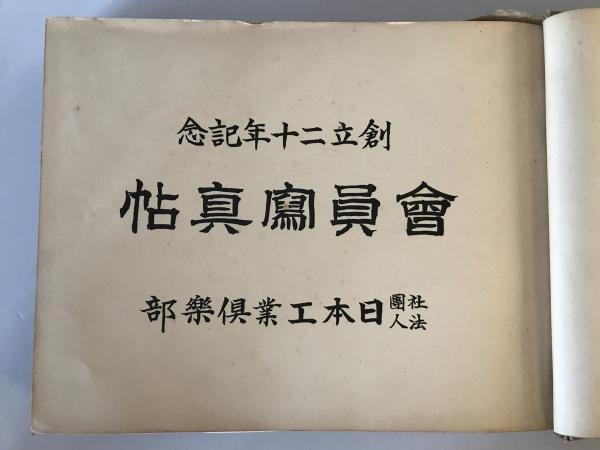 創立二十年記念
會員寫眞帖
社團法人日本工業俱樂部